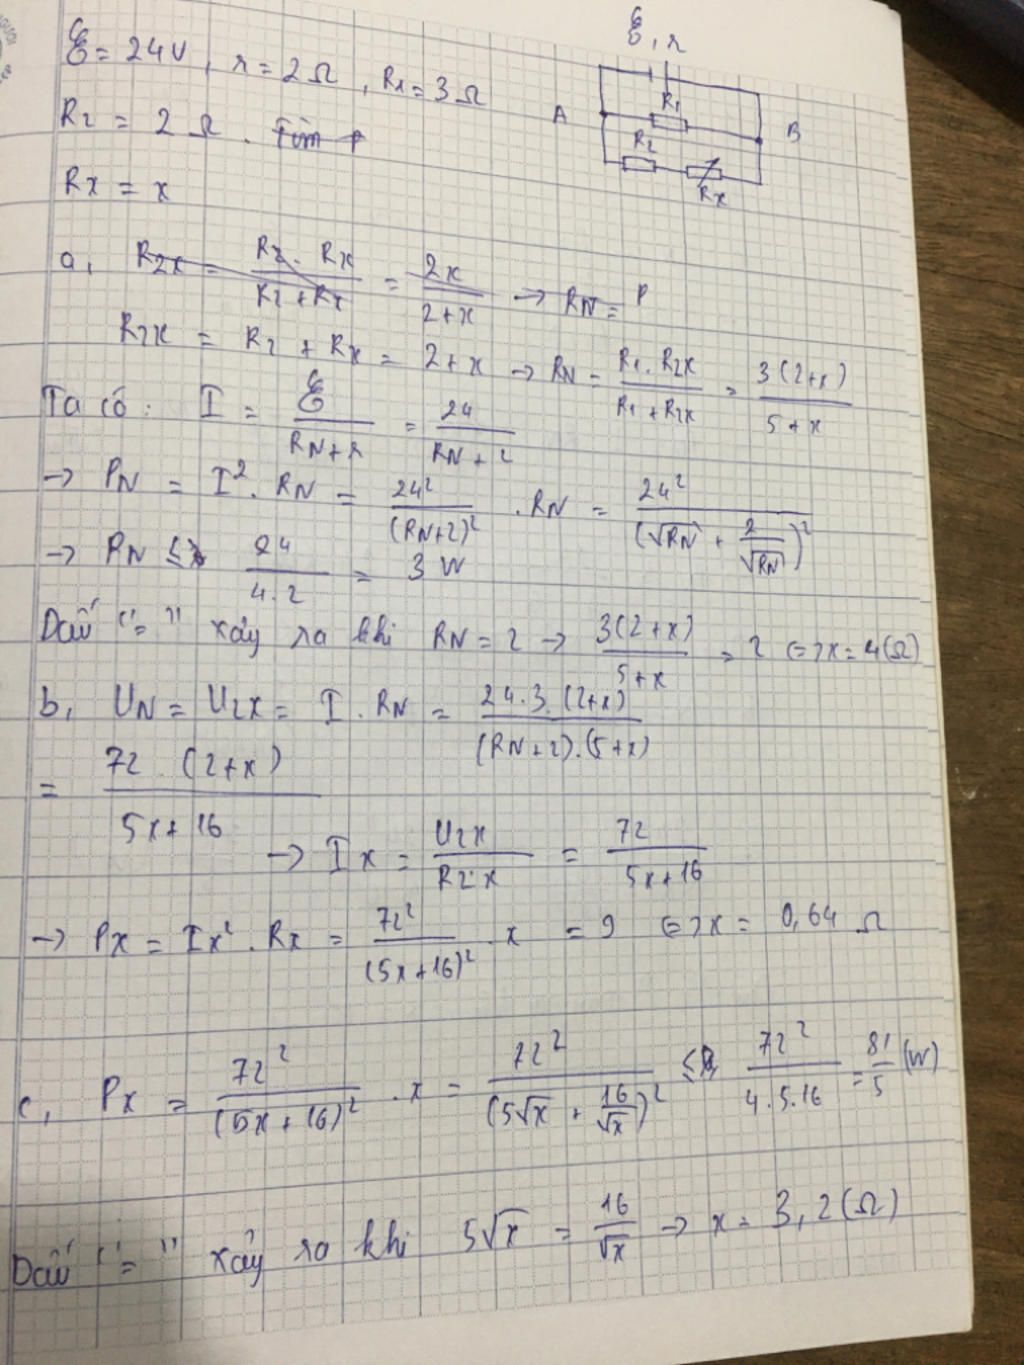 ℰ, r
R1
A
B
R2
Rx
ℰ = 24V, r = 2Ω, R1 = 3Ω
R2 = 2Ω. Tìm
Rx = x
a, R2x = R2 . Rx / R2 + Rx = 2x / 2 + x → RN =
R2x = R2 + Rx = 2 + x → RN = R1 . R2x / R1 + R2x = 3(2+x) / 5 + x
Ta có: I = ℰ / RN + r = 24 / RN + 2
→ PN = I² . RN = 24² / (RN+2)² . RN = 24² / (√RN + 2/√RN)²
→ PN ≤ 24 / 4.2 = 3 W
Dấu "=" xảy ra khi RN = 2 → 3(2+x) / 5+x = 2 <=> x = 4(Ω)
b, UN = U2x = I . RN = 24.3.(2+x) / (RN+2).(5+x)
= 72 . (2+x) / 5x + 16
→ Ix = U2x / R2x = 72 / 5x+16
→ Px = Ix² . Rx = 72² / (5x+16)² . x = 9 <=> x = 0,64 Ω
c, Px = 72² / (5x + 16)² . x = 72² / (5√x + 16/√x)² ≤ 72² / 4.5.16 = 81/5 (W)
Dấu "=" xảy ra khi 5√x = 16/√x → x = 3,2(Ω)